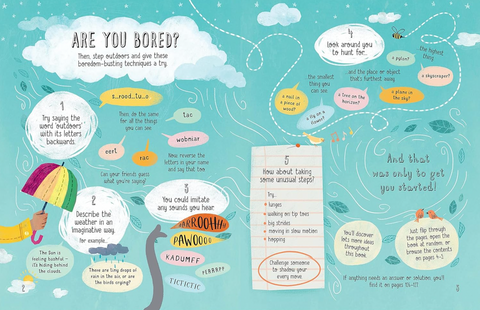 ARE YOU BORED?
Then, step outdoors and give these
boredom-busting techniques a try.
1
Try saying the
word 'outdoors'
with its letters
backwards.
Then do the same
for all the things
you can see
tac
wobniar
eert
rac
Now reverse the
letters in your name
and say that too.
Can your friends guess
what you're saying?
2
Describe the
weather in an
imaginative way,
for example...
The Sun is
feeling bashful –
it's hiding behind
the clouds.
There are tiny drops of
rain in the air, or are
the birds crying?
3
You could imitate
any sounds you hear.
PAWOOOO
KADUMFF
TICTICTIC
4
Look around you
to hunt for...
the smallest
thing you
can see
...and the place or object
that's furthest away
the highest
thing
a pylon?
a skyscraper?
a nail in a
piece of
wood?
a tree on the
horizon?
a plane in the
sky?
a fly on a
flower?
5
How about taking
some unusual steps?
Try...
lunges
walking on tip toes
big strides
moving in slow motion
hopping
Challenge someone
to shadow your
every move.
And that
was only to get
you started!
You'll discover
lots more ideas
throughout
this book.
Just flip through
the pages, open the
book at random, or
browse the contents
on pages 4-5
If anything needs an answer or solution, you'll
find it on pages